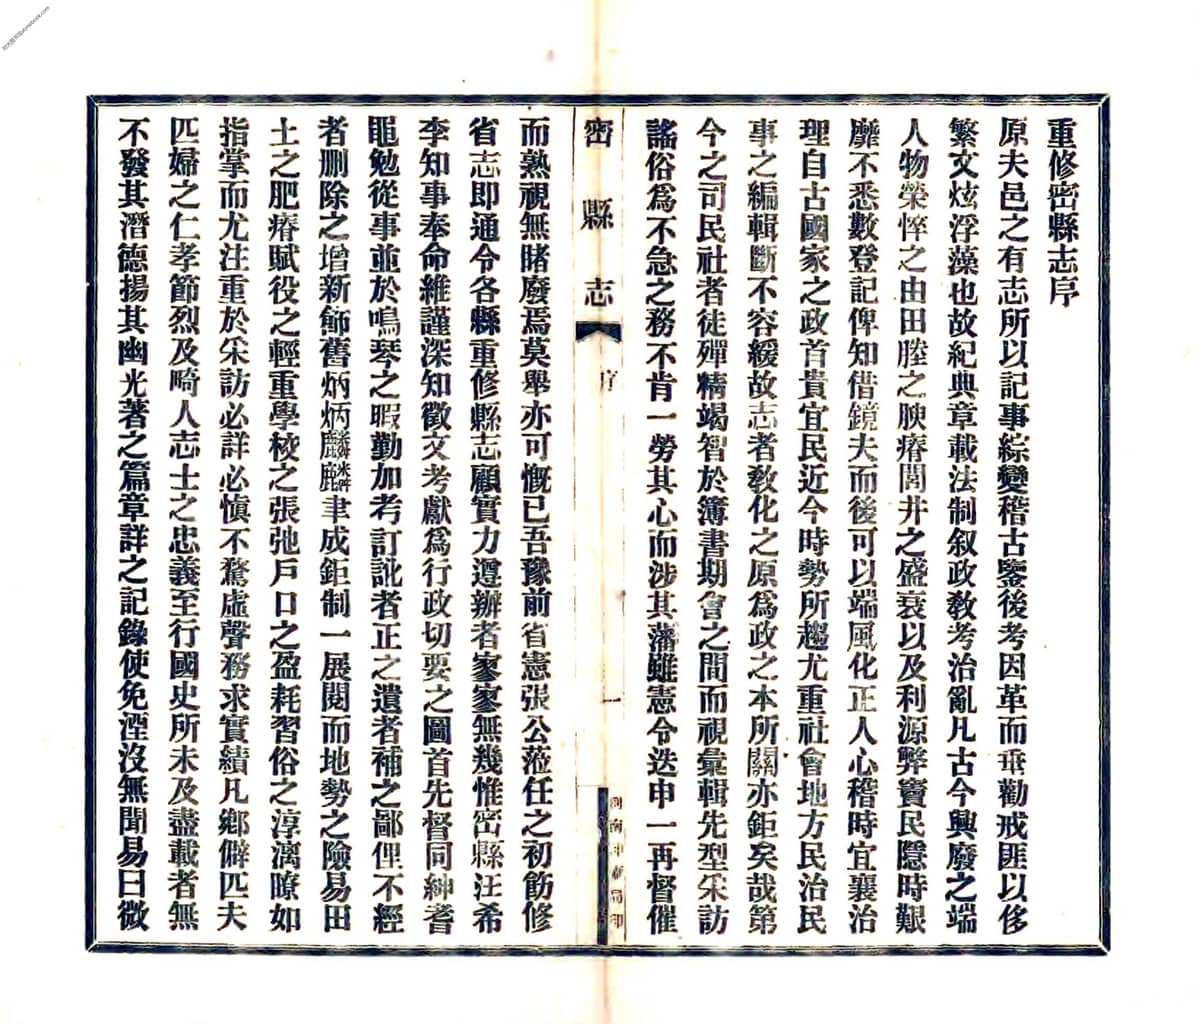 重修密縣志序
原夫邑之有志所以記事綜變稽古鑒後考因革而垂勸戒匪以侈
繁文炫浮藻也故紀典章載法制叙政敎考治亂凡古今興廢之端
人物榮悴之由田塍之腴瘠閭井之盛衰以及利源弊竇民隱時艱
靡不悉數登記俾知借鏡夫而後可以端風化正人心稽時宜襄治
理自古國家之政首貴宜民近今時勢所趨尤重社會地方民治民
事之編輯斷不容緩故志者敎化之原爲政之本所關亦鉅矣哉第
今之司民社者徒殫精竭智於簿書期會之間而視彙輯先型采訪
謠俗爲不急之務不肯一勞其心而涉其藩雖憲令迭申一再督催
密縣志
序
一
河南商務印
而熟視無睹廢焉莫舉亦可慨已吾豫前省憲張公蒞任之初筯修
省志即通令各縣重修縣志顧實力遵辦者寥寥無幾惟密縣汪希
李知事奉命維謹深知徵文考獻爲行政切要之圖首先督同紳耆
黽勉從事並於鳴琴之暇勤加考訂訛者正之遺者補之鄙俚不經
者删除之增新飾舊炳炳麟麟聿成鉅制一展閱而地勢之險易田
土之肥瘠賦役之輕重學校之張弛戶口之盈耗習俗之淳漓瞭如
指掌而尤注重於采訪必詳必愼不騖虛聲務求實績凡鄉僻匹夫
匹婦之仁孝節烈及畸人志士之忠義至行國史所未及盡載者無
不發其潛德揚其幽光著之篇章詳之記錄使免湮沒無聞易曰微